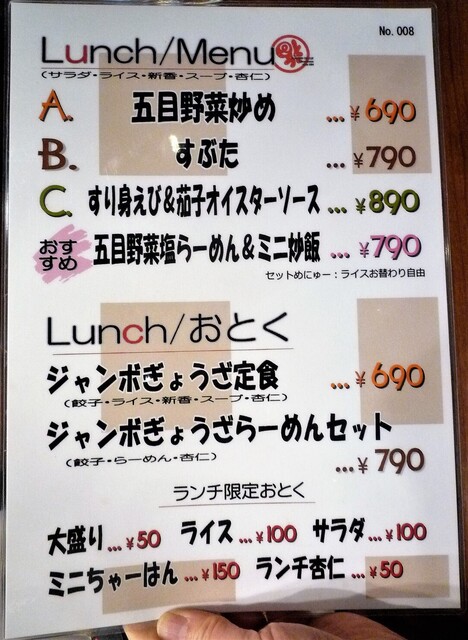 No. 008
Lunch/Menu
(サラダ・ライス・新香・スープ・杏仁)
A. 五目野菜炒め ...¥690
B. すぶた ...¥790
C. すり身えび&茄子オイスターソース ...¥890
おすすめ 五目野菜塩らーめん&ミニ炒飯 ...¥790
セットめにゅー:ライスお替わり自由
Lunch/おとく
ジャンボぎょうざ定食 ...¥690
(餃子・ライス・新香・スープ・杏仁)
ジャンボぎょうざらーめんセット
(餃子・らーめん・杏仁)
...¥790
ランチ限定おとく
大盛り...¥50 ライス...¥100 サラダ...¥100
ミニちゃーはん...¥150 ランチ杏仁...¥50